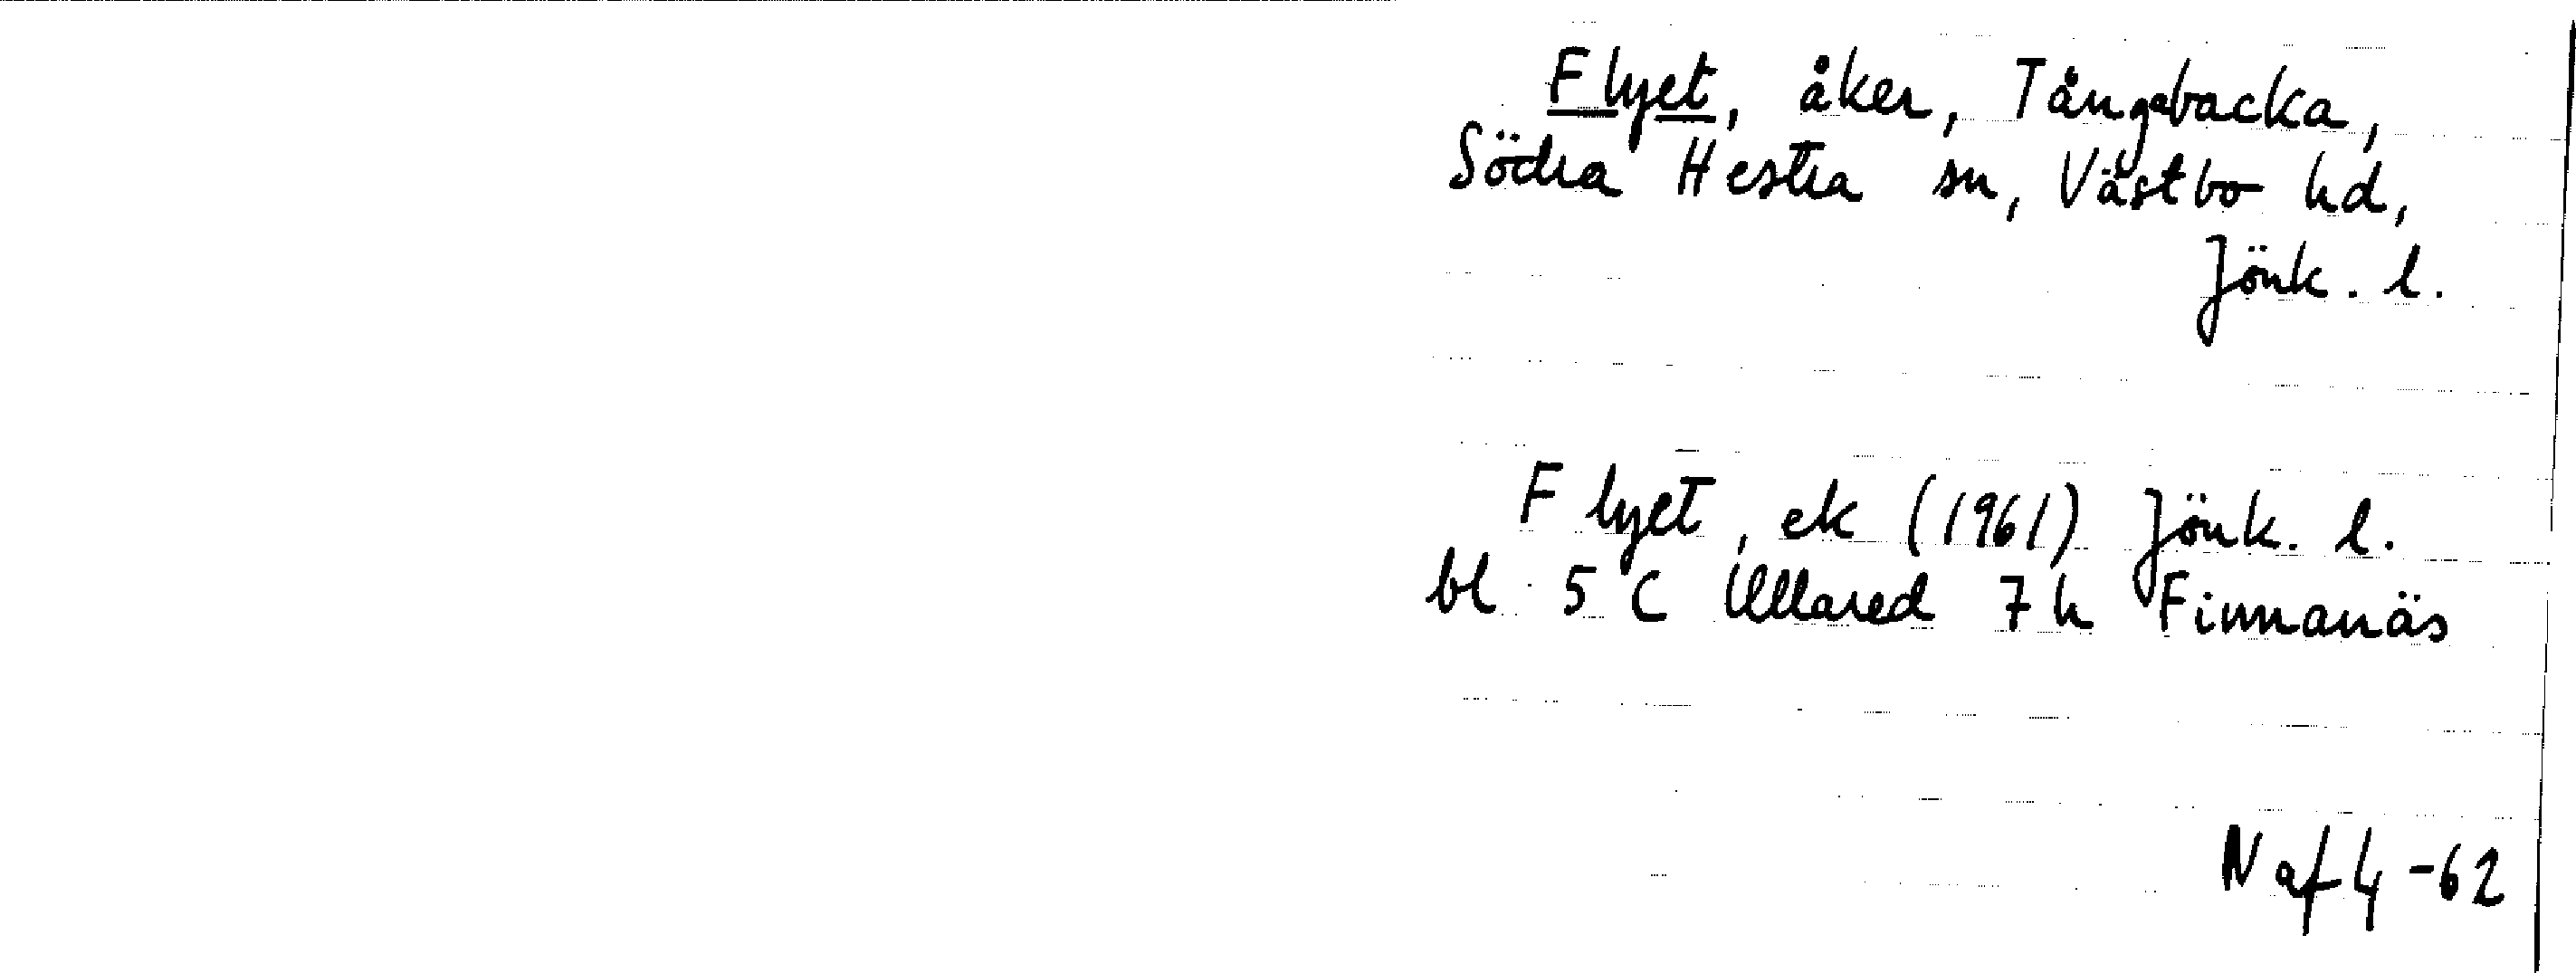 Flyet, åker, Tångabacka,
Södra Hestra sn, Västbo hd,
Jönk. l.
Flyet, ek (1961) Jönk. l.
bl 5 C Ullared 7 h Finnanäs
N af 4 -62